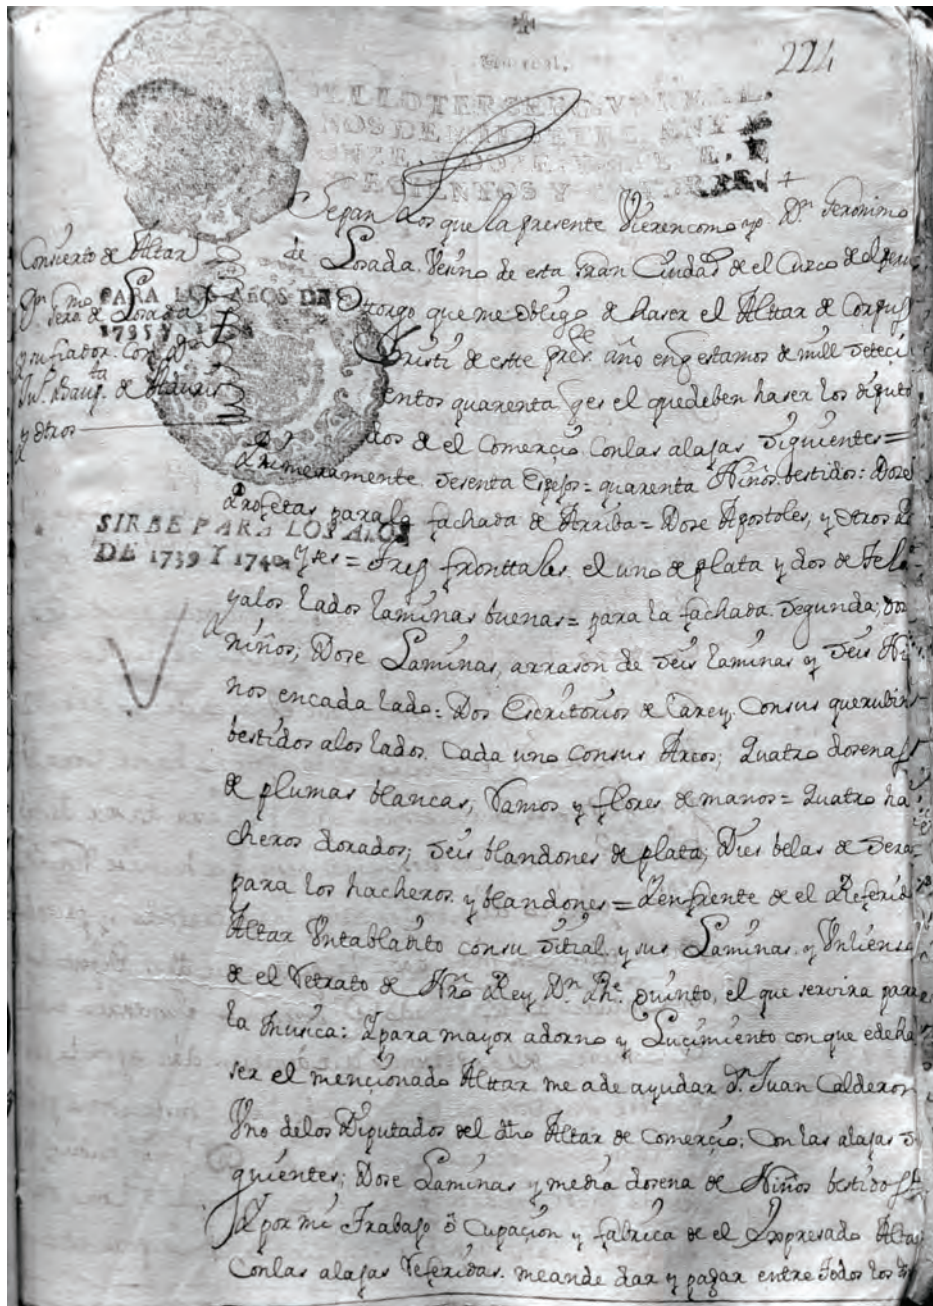 Un real.
224
SELLO TERCERO, VN REAL,
NOS DE MIL SETECIENT
ONZE, Y DOZE,
TECIENTOS Y
Concierto de Alttar
Dn. Germo. de Losada
y su fiador con Dn.
Jun. Baupta. de
y otros
PARA LOS AÑOS DE
1735 Y
SIRBE PARA LOS AÑOS
DE 1739 Y 1740
Sepan los que la presente Vieren como yo Dn. Jeronimo
de Losada Vesino de esta Gran Ciudad de el Cuzco de el peru
Otorgo que me obligo de haser el Alttar de Corpus
Christi de este preste. año en q estamos de mill seteci
entos quarenta q es el que deben haser los diputa
dos de el Comerçio Con las alajas Siguientes =
Primeramente Sesenta Espejos = quarenta Niños bestidos: Dose
Profetas para la fachada de Arriba = Dose Apostoles, y otros
= Tres fronttales el uno de plata y dos de Tela
y a los lados laminas buenas = para la fachada Segunda; dos
niños; Dose Laminas, a rrason de seis laminas y seis Ni
ños en cada lado = Dos Escritorios de Carey Con sus querubin
bestidos a los lados Cada uno con sus Arcos; Quatro dosenas
de plumas blancas, Ramos y flores de manos = Quatro ha
cheros dorados; seis blandones de plata; Dies belas de sera
para los hacheros y blandones = Y enfrente de el Referido
Alttar Un tabladito con su sitial y sus Laminas y Un lienso
de el Retrato de Nro Rey Dn. Phe. Quinto, el que servira para
la musica: Y para mayor adorno y Lucimiento con que
ser el mençionado Alttar me a de ayudar Dn. Juan Calderon
Uno de los Diputados del dho Alttar de Comerçio; Con las alajas Si
guientes; Dose Laminas y media dosena de Niños bestidos
Y por mi Trabajo o Cupaçion y fabrica de el Expresado Altar
Con las alajas Referidas me an de dar y pagar entre todos los